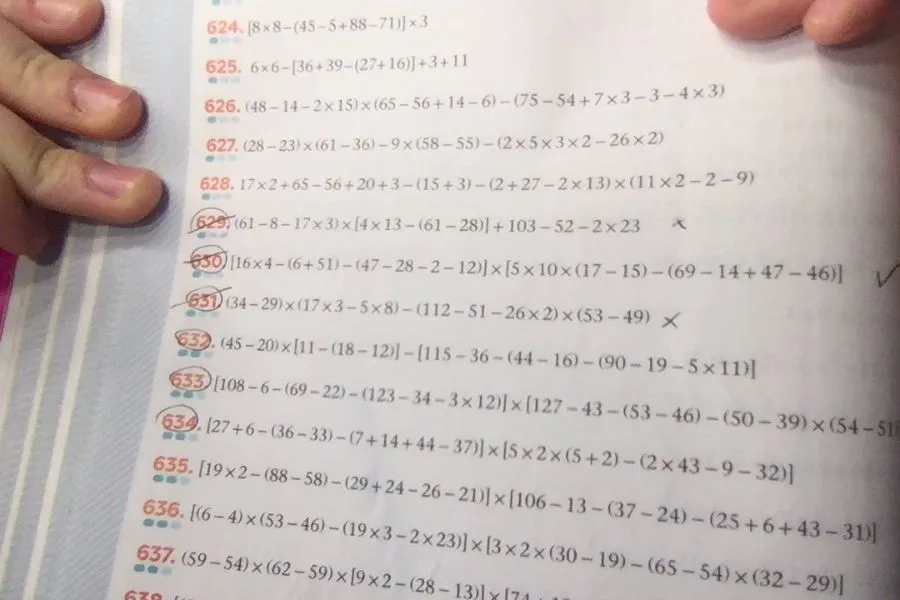 624. [8×8−(45−5+88−71)]×3
625. 6×6−[36+39−(27+16)]+3+11
626. (48−14−2×15)×(65−56+14−6)−(75−54+7×3−3−4×3)
627. (28−23)×(61−36)−9×(58−55)−(2×5×3×2−26×2)
628. 17×2+65−56+20+3−(15+3)−(2+27−2×13)×(11×2−2−9)
629. (61−8−17×3)×[4×13−(61−28)]+103−52−2×23 ×
630. [16×4−(6+51)−(47−28−2−12)]×[5×10×(17−15)−(69−14+47−46)] ✓
631. (34−29)×(17×3−5×8)−(112−51−26×2)×(53−49) ×
632. (45−20)×[11−(18−12)]−[115−36−(44−16)−(90−19−5×11)]
633. [108−6−(69−22)−(123−34−3×12)]×[127−43−(53−46)−(50−39)×(54−51
634. [27+6−(36−33)−(7+14+44−37)]×[5×2×(5+2)−(2×43−9−32)]
635. [19×2−(88−58)−(29+24−26−21)]×[106−13−(37−24)−(25+6+43−31)]
636. [(6−4)×(53−46)−(19×3−2×23)]×[3×2×(30−19)−(65−54)×(32−29)]
637. (59−54)×(62−59)×[9×2−(28−13)]×[74
638.